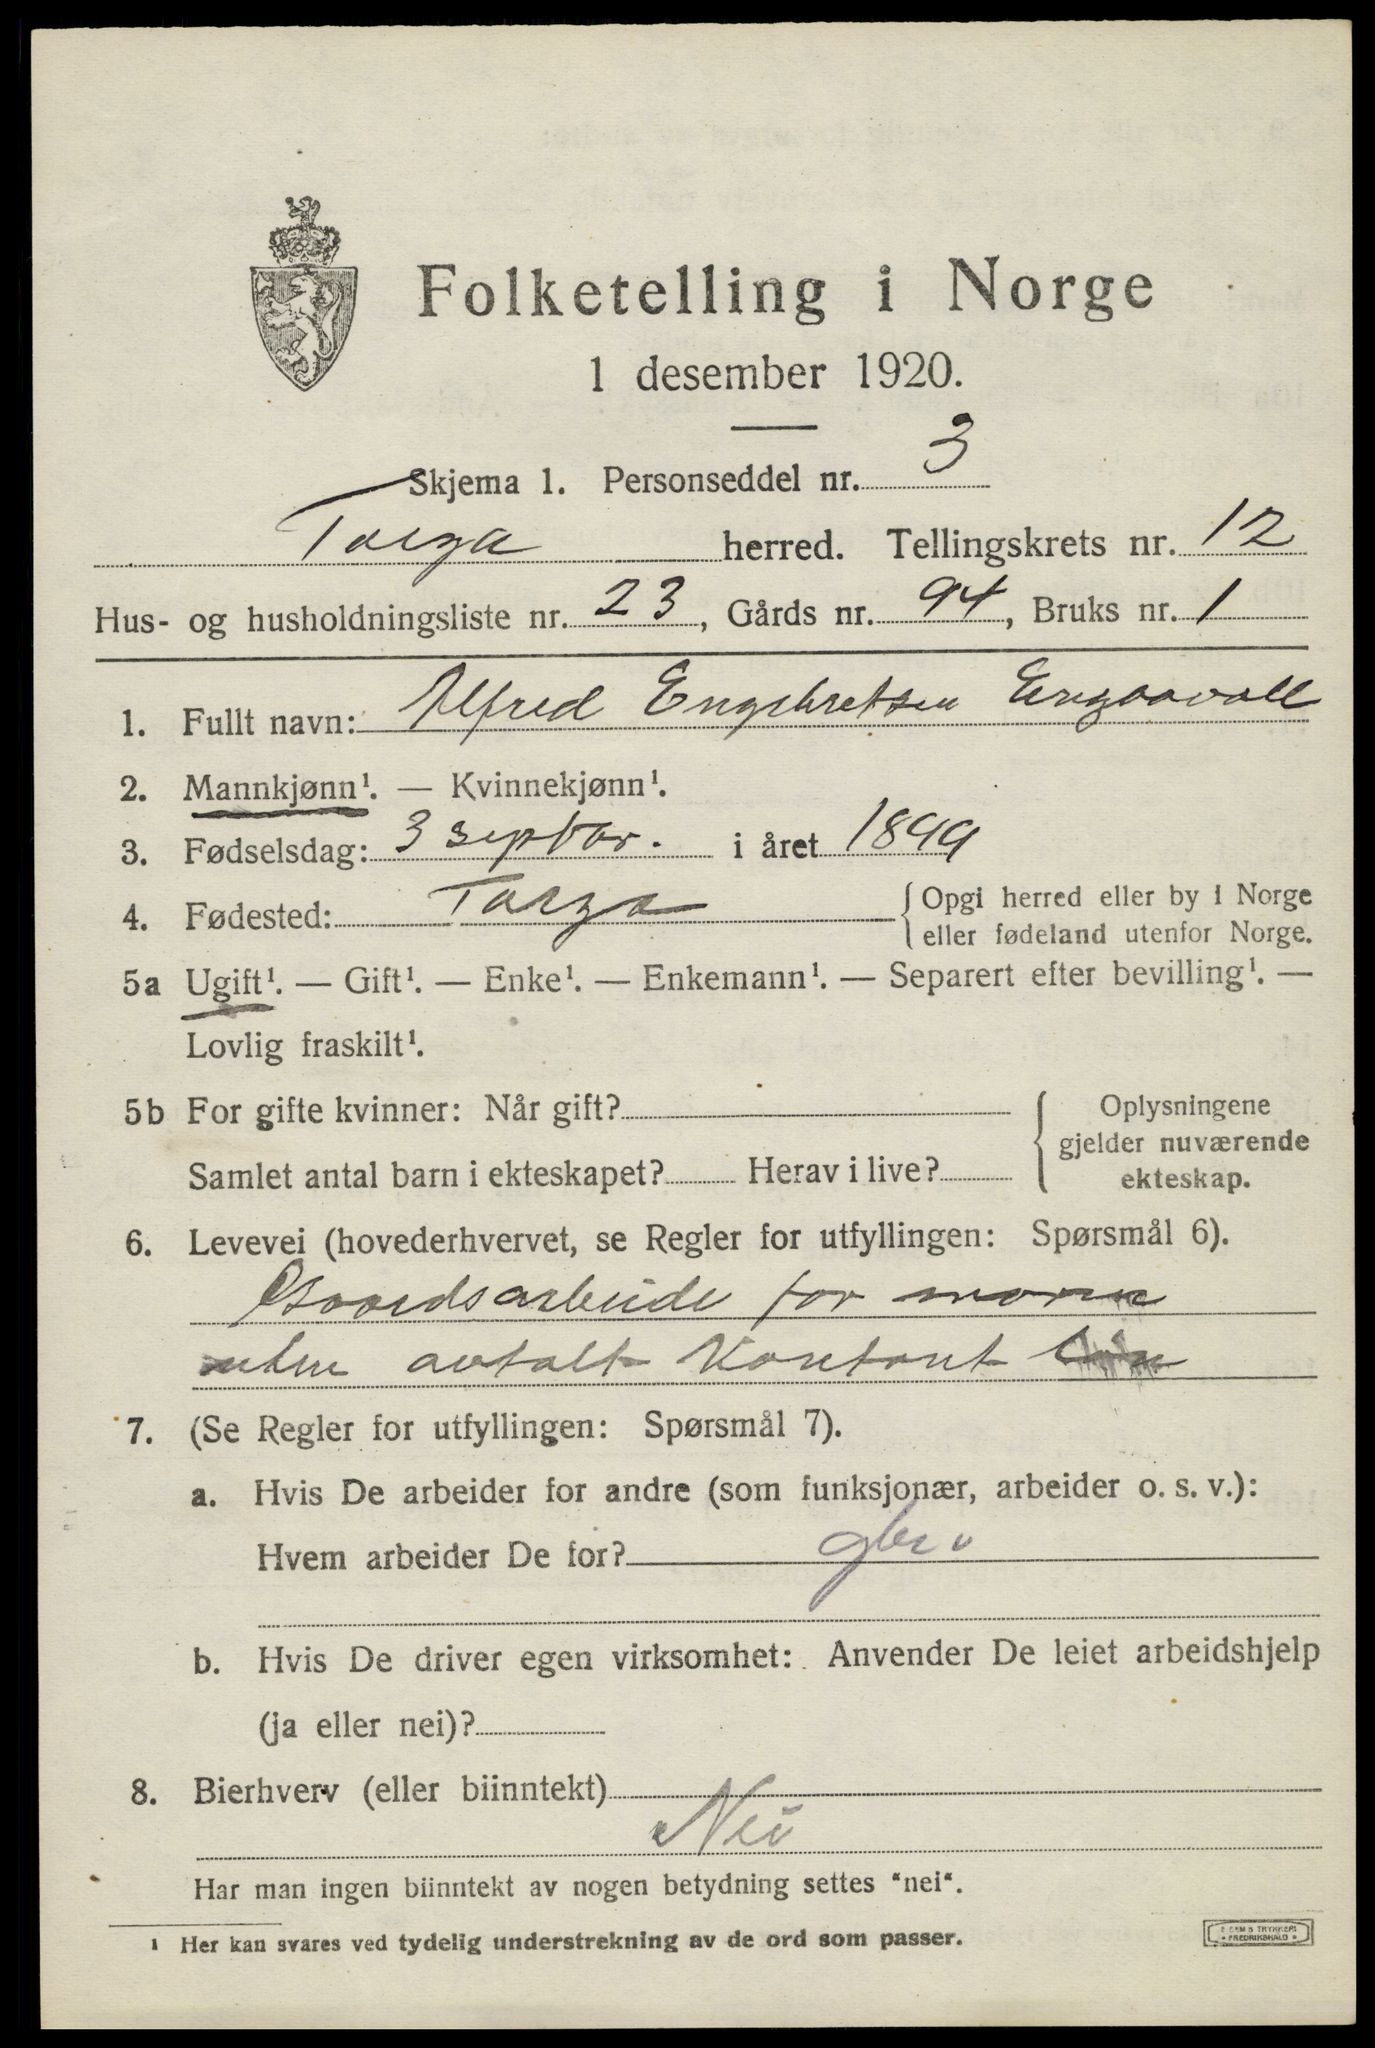 Folketelling i Norge
1 desember 1920.
Skjema 1. Personseddel nr. 3
Torga herred. Tellingskrets nr. 12
Hus- og husholdningsliste nr. 23, Gårds nr. 94, Bruks nr. 1
1. Fullt navn: Alfred Engebretsen Engaavoll
2. Mannkjønn¹. — Kvinnekjønn¹.
3. Fødselsdag: 3 septbr. i året 1899
4. Fødested: Torga { Opgi herred eller by i Norge
eller fødeland utenfor Norge.
5a Ugift¹. — Gift¹. — Enke¹. — Enkemann¹. — Separert efter bevilling¹. —
Lovlig fraskilt¹.
5b For gifte kvinner: Når gift? { Oplysningene
gjelder nuværende
Samlet antal barn i ekteskapet? Herav i live? ekteskap.
6. Levevei (hovederhvervet, se Regler for utfyllingen: Spørsmål 6).
Gaardsarbeide for
uten avtalt Kontant løn
7. (Se Regler for utfyllingen: Spørsmål 7).
a. Hvis De arbeider for andre (som funksjonær, arbeider o. s. v.):
Hvem arbeider De for?
b. Hvis De driver egen virksomhet: Anvender De leiet arbeidshjelp
(ja eller nei)?
8. Bierhverv (eller biinntekt)
Nei
Har man ingen biinntekt av nogen betydning settes "nei".
¹ Her kan svares ved tydelig understrekning av de ord som passer.